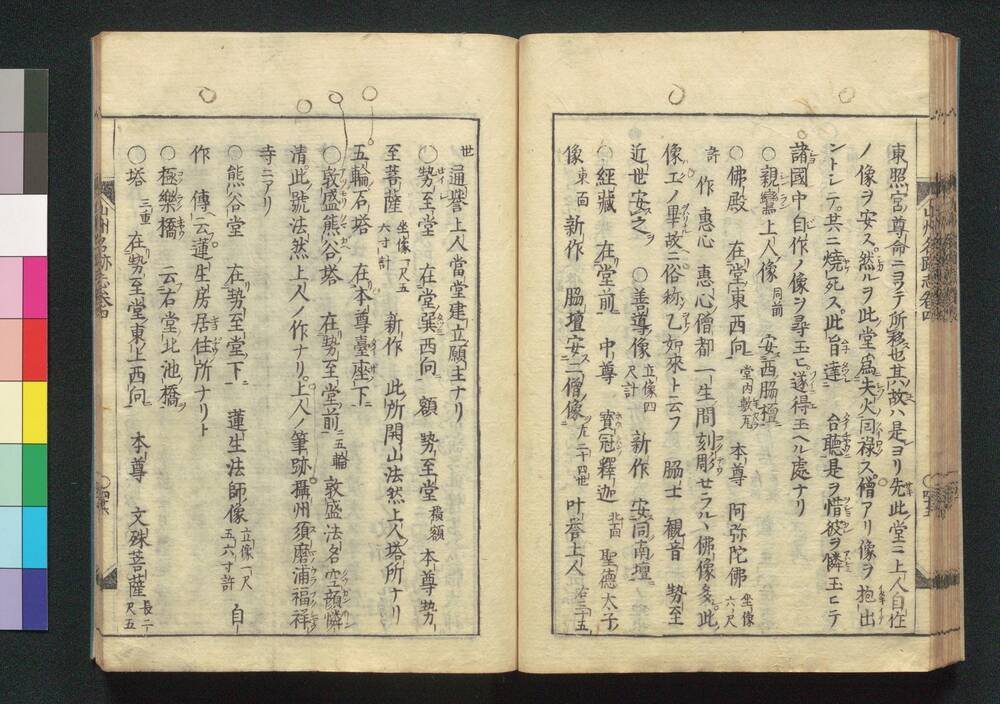 東照宮尊命ニヨテ所移也其故ハ是ヨリ先此堂ニ上人自作
ノ像ヲ安ス然ルヲ此堂爲失火囘禄ス僧アリ像ヲ抱出
ントシテ共ニ燒死ス此旨達 台聽是ヲ惜彼ヲ憐玉ヒテ
諸國中自作ノ像ヲ尋玉ヒ遂得玉ヘル處ナリ
○親鸞上人像 同前 安西脇檀
○佛殿 在堂東西向 堂内敷瓦 本尊 阿弥陀佛 坐像六尺
許 作 惠心 惠心僧都一生間刻彫セラルヽ佛像多此
像エノ畢故ニ俗称乙如來ト云フ 脇士 観音 勢至
近世安之 ○善導像 立像四尺計 新作 安同南壇
○経藏 在堂前 中尊 寳冠釋迦 北面 聖德太子
像 東面 新作 脇壇安二僧像 左二十四世 叶誉上人 右三十五
世 通誉上人當堂建立願主ナリ
○勢至堂 在堂巽西向 額 勢至堂 横額 本尊勢
至菩薩 坐像一尺五六寸計 新作 此所開山法然上人塔所ナリ
五輪石塔 在本尊臺座下
○敦盛熊谷塔 在勢至堂前 五輪 敦盛法名空顔憐
清此號法然上人ノ作ナリ上人ノ筆跡攝州須磨浦福祥
寺ニアリ
○熊谷堂 在勢至堂下 蓮生法師像 立像一尺五六寸許 自
作 傳云蓮生房居住所ナリト
○極樂橋 云右堂北池橋
○塔 三重 在勢至堂東上西向 本尊 文殊菩薩 長二尺五
山州名跡志卷四
山州名跡志卷四